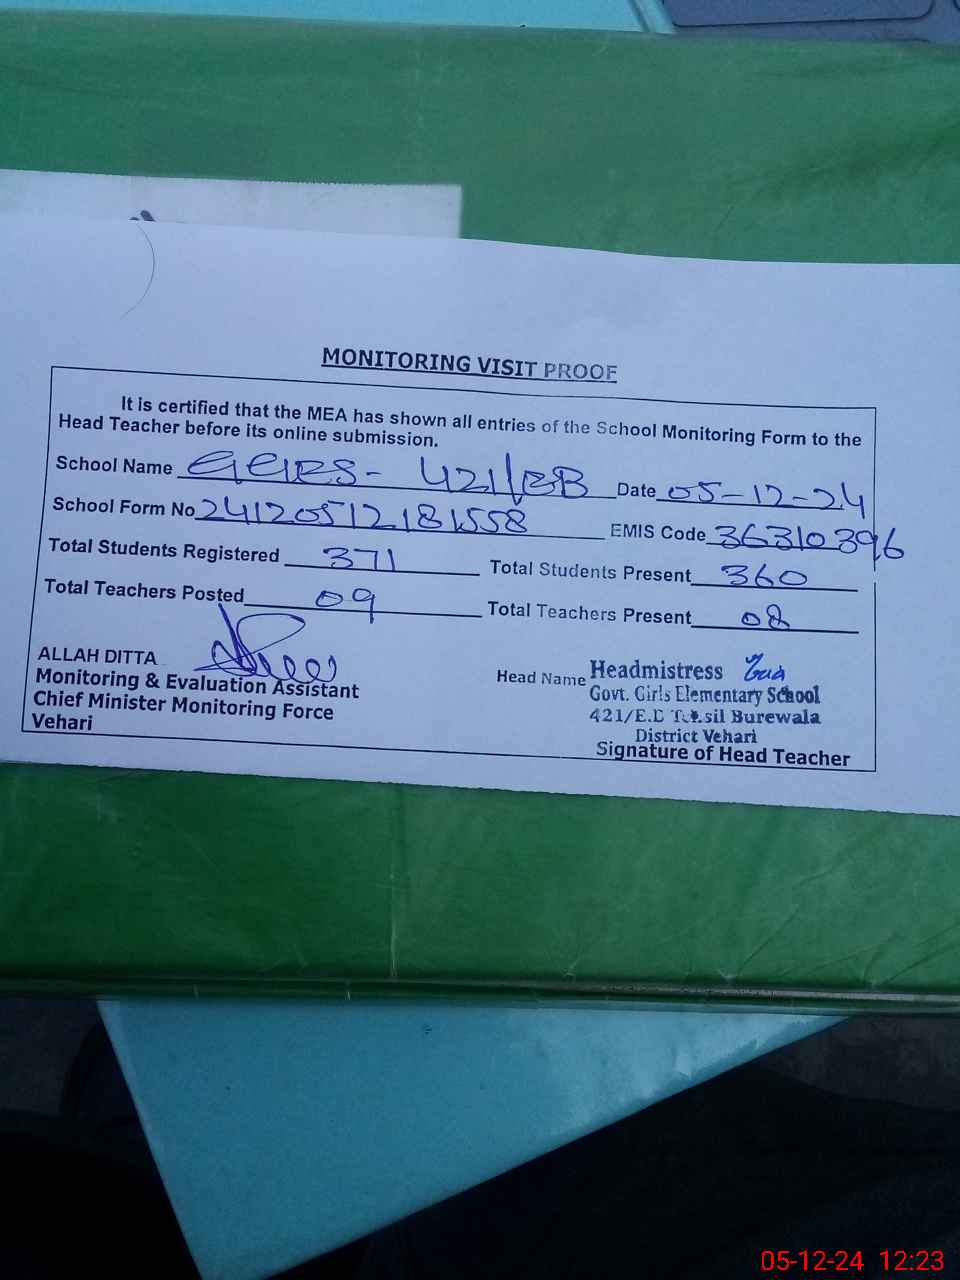 MONITORING VISIT PROOF
It is certified that the MEA has shown all entries of the School Monitoring Form to the
Head Teacher before its online submission.
School Name GGES- 421/EB Date 05-12-24
School Form No 24120512181558 EMIS Code 36310396
Total Students Registered 371 Total Students Present 360
Total Teachers Posted 09 Total Teachers Present 08
ALLAH DITTA
Monitoring & Evaluation Assistant
Chief Minister Monitoring Force
Vehari
Head Name Headmistress
Govt. Girls Elementary School
421/E.B Tehsil Burewala
District Vehari
Signature of Head Teacher
05-12-24 12:23